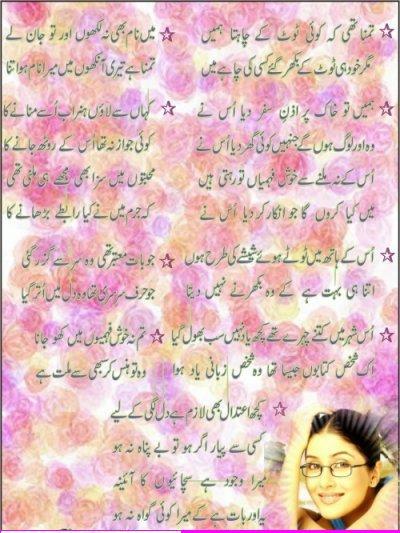 تمنا تھی کہ کوئی ٹوٹ کے چاہتا ہمیں
مگر خود ہی ٹوٹ کے بکھر گئے کسی کی چاہ میں
ہمیں تو خاک پر اذن سفر دیا اُس نے
وہ اور لوگ ہوں گے جنہیں کوئی گھر دیا اُس نے
اُس کے نہ ملنے سے خوش فہمیاں تو رہتی ہیں
میں کیا کروں گا جو انکار کر دیا اُس نے
اُس کے ہاتھ میں ٹوٹے ہوئے شیشے کی طرح ہوں
اتنا ہی بہت ہے کے وہ بکھرنے نہیں دیتا
اُس شہر میں کتنے چہرے تھے کچھ یاد نہیں سب بھول گیا
اک شخص کتابوں جیسا تھا وہ شخص زبانی یاد ہوا
میں نام بھی نہ لکھوں اور تو جان لے
تمنا ہے تیری آنکھوں میں میرا نام ہو اتنا
کہاں سے لاؤں ہنر اب اُسے منانے کا
کوئی جواز نہ تھا اُس کے روٹھ جانے کا
محبتوں میں سزا بھی مجھے ہی ملنی تھی
کہ جرم میں نے کیا رابطے بڑھانے کا
جو بات معتبر تھی وہ سر سے گزر گئی
جو حرف سرسری تھا وہ دل میں اُتر گیا
تم نہ خوش فہمیوں میں کھو جانا
وہ تو ہنس کر سبھی سے ملت ہے
کچھ اعتدال بھی لازم ہے دل لگی کے لیے
کسی سے پیار اگر ہو تو بے پناہ نہ ہو
میرا وجود ہے سچائیوں کا آئینہ
یہ اور بات ہے کے میرا کوئی گواہ نہ ہو